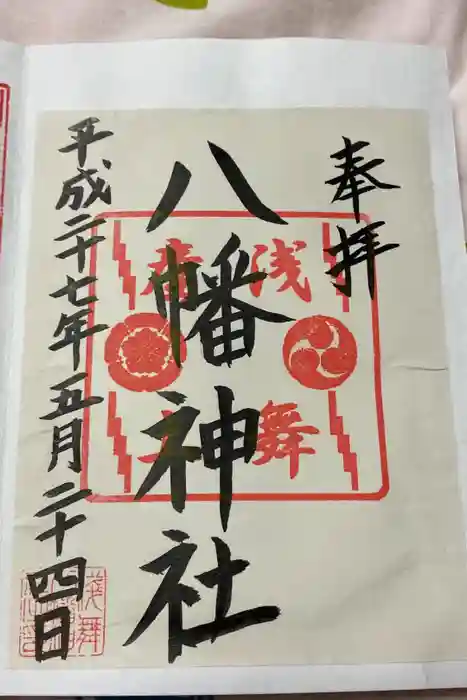 奉拝
浅舞
産土
八幡神社
平成二十七年五月二十四日